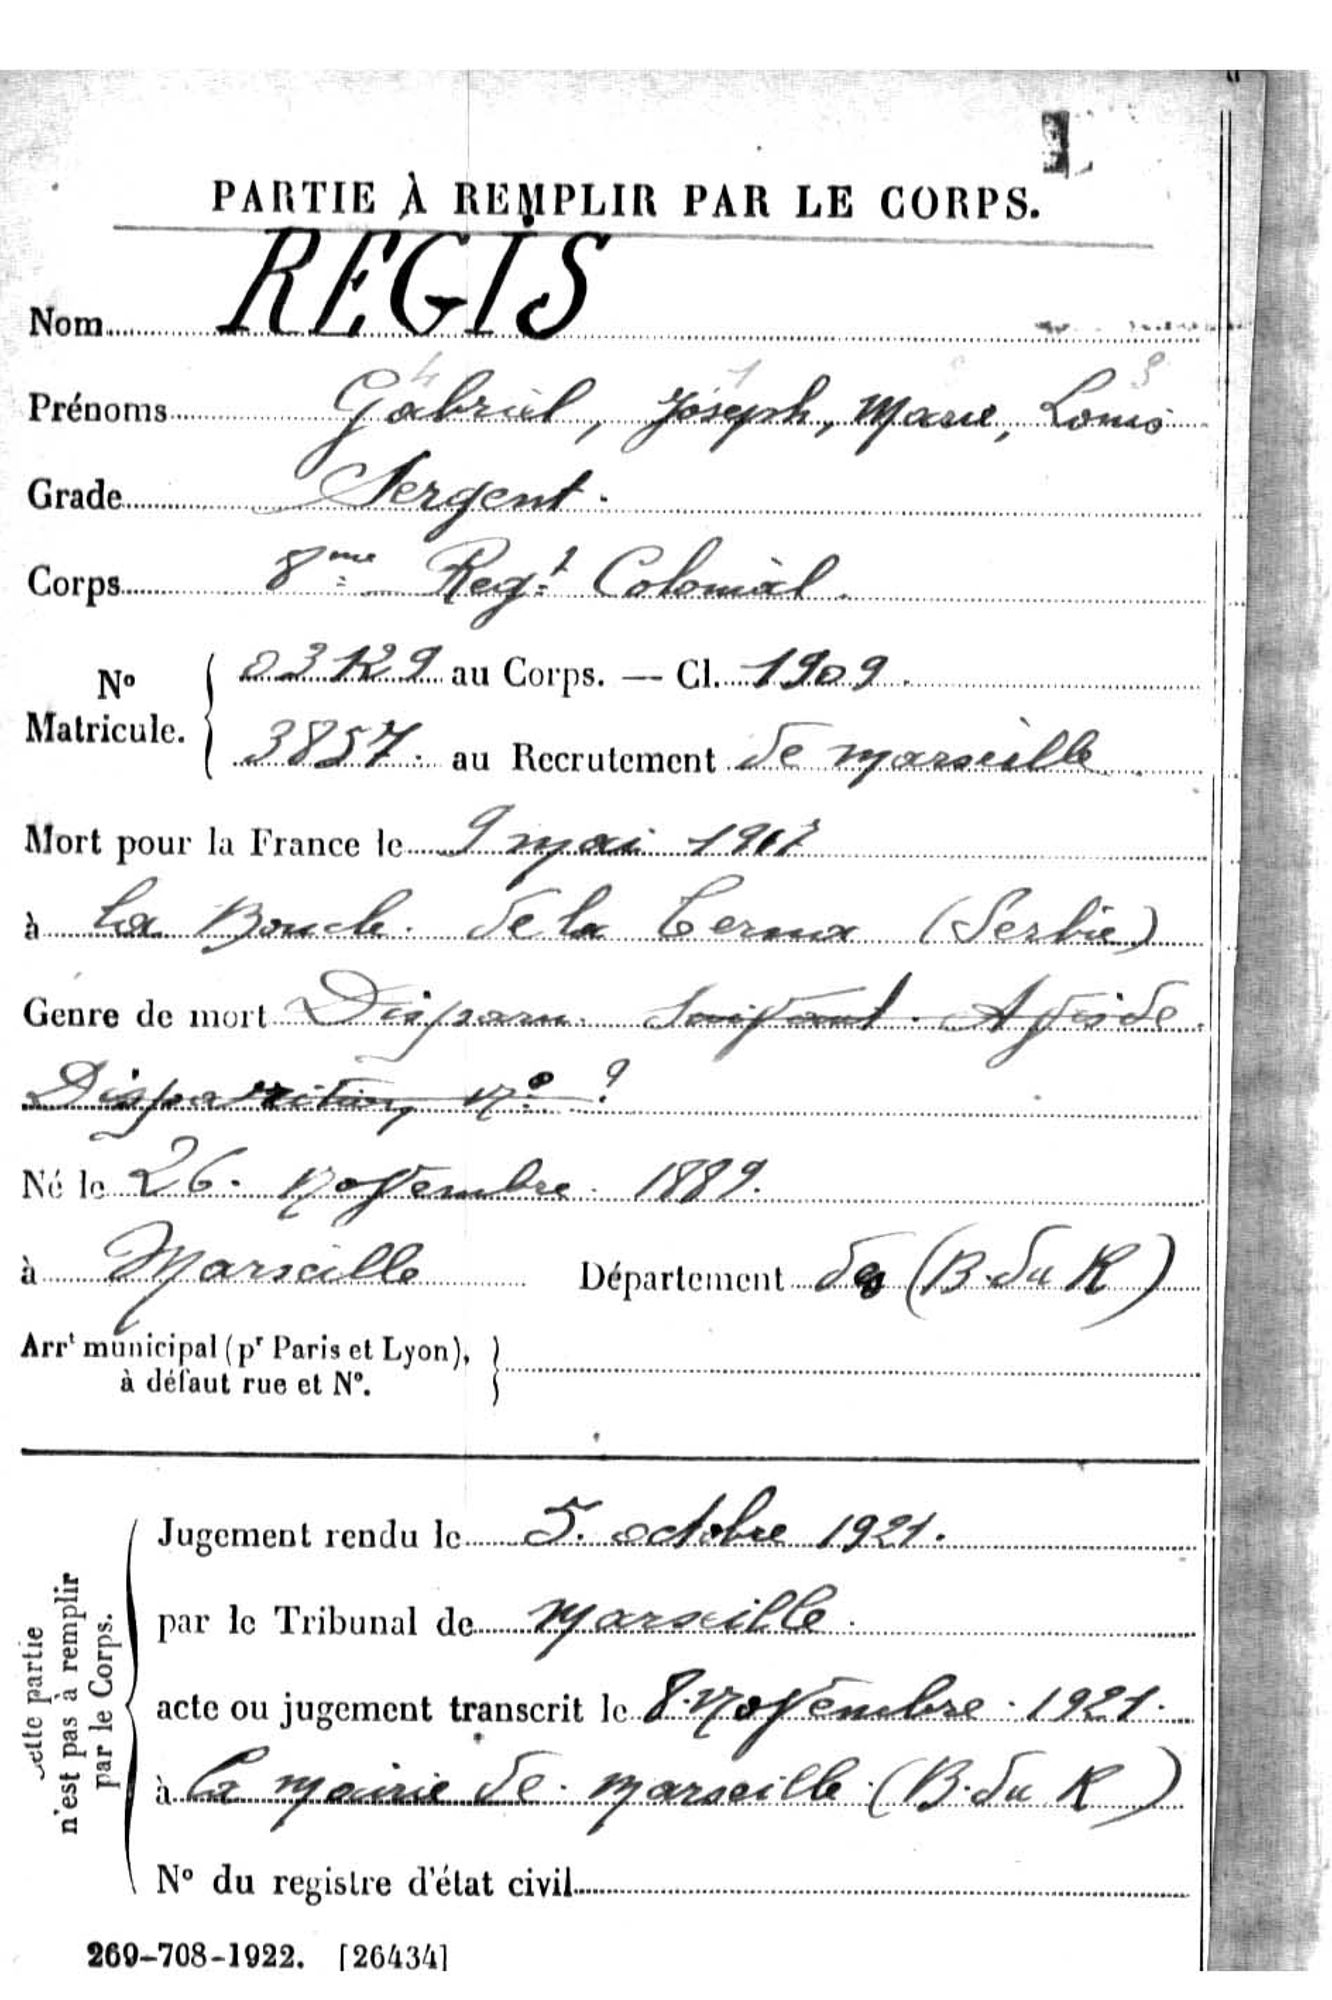 PARTIE À REMPLIR PAR LE CORPS.
Nom REGIS
4 1 3
Prénoms Gabriel, Joseph, Marie, Louis
Grade Sergent.
Corps 8me Regt Colonial.
No Matricule. 03129 au Corps. — Cl. 1909.
3857. au Recrutement de Marseille
Mort pour la France le 9 mai 1917
à La Boucle de la Cerna (Serbie)
Genre de mort Disparu. Suivant Avis de
Disparition No ?
Né le 26. Novembre 1889.
à Marseille Département des (B. du R)
Arrt municipal (pr Paris et Lyon),
à défaut rue et No.
Cette partie
n'est pas à remplir
par le Corps.
Jugement rendu le 5. octobre 1921.
par le Tribunal de Marseille.
acte ou jugement transcrit le 8. Novembre. 1921.
à la mairie de. Marseille. (B. du R)
No du registre d'état civil
269-708-1922. [26434]